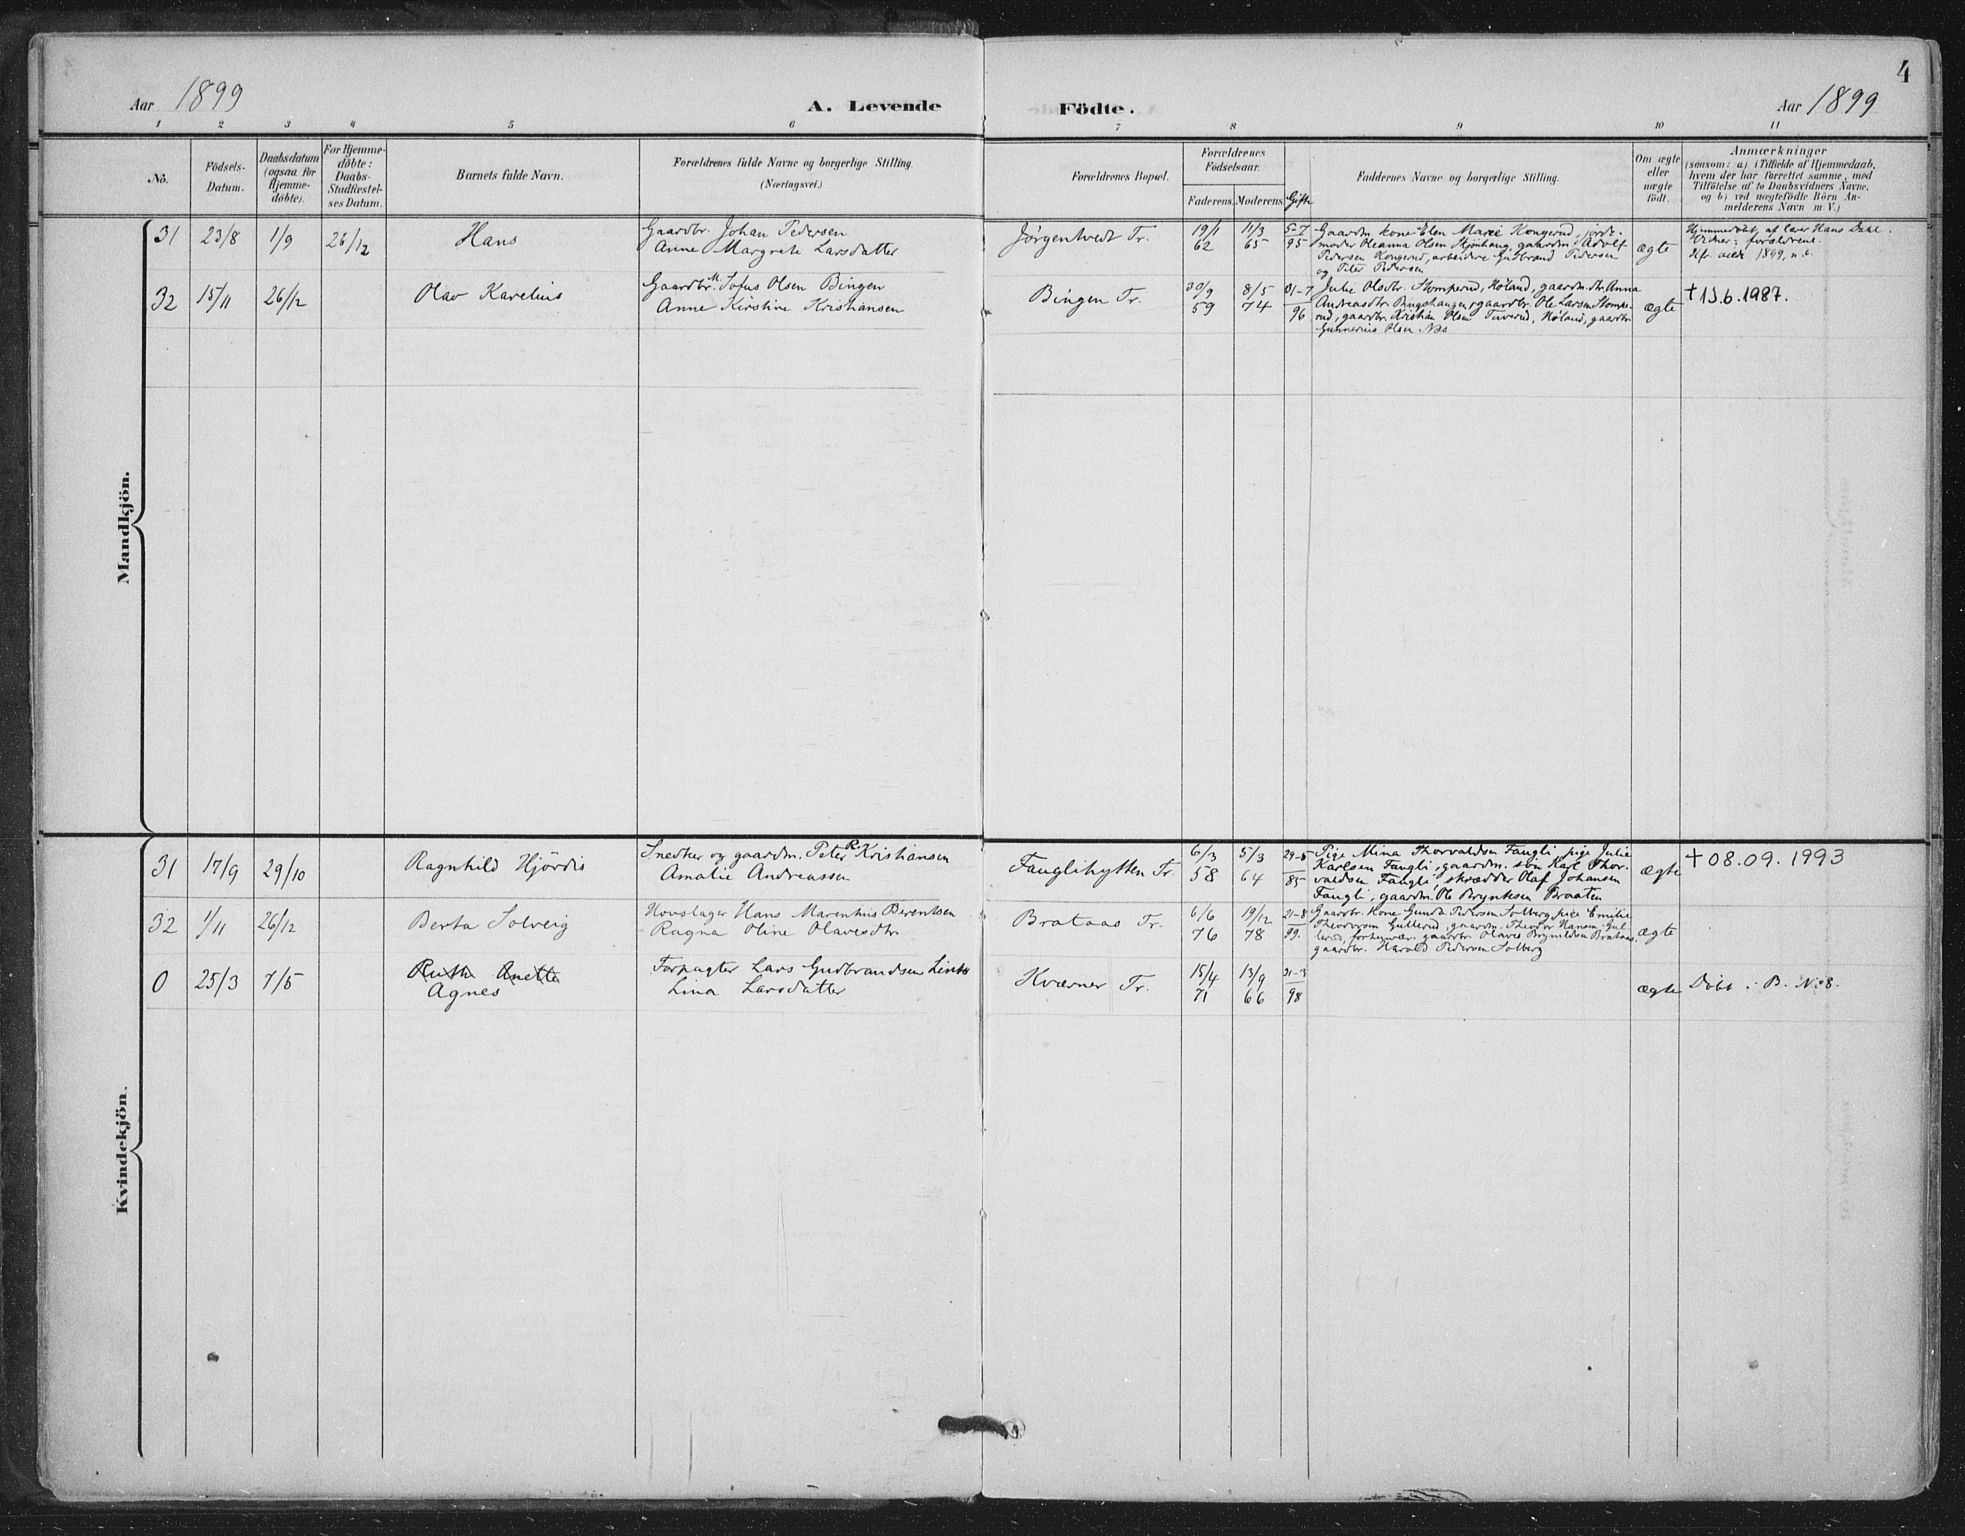 4
Aar 1899 A. Levende Födte. Aar 1899
1 2 3 4 5 6 7 8 9 10 11
No.
Födsels-
Datum.
Daabsdatum
(ogsaa for
Hjemme-
döbte).
For Hjemme-
döbte:
Daabs-
Stadfæstel-
ses Datum.
Barnets fulde Navn.
Forældrenes fulde Navne og borgerlige Stilling.
(Næringsvei.)
Forældrenes Bopæl.
Forældrenes
Födselsaar.
Faderens. Moderens.
Gifte
Faddernes Navne og borgerlige Stilling.
Om ægte
eller
uægte
født.
Anmærkninger
(saasom: a) i Tilfælde af Hjemmedaab,
hvem der har forrettet samme, med
Tilføielse af to Daabsvidners Navne,
og b) ved uægtefödte Börn An-
melderens Navn m. V.)
Mandkjön.
31 23/8 1/9 26/12 Hans
Gaardbr. Johan Pedersen
Anne Margrete Larsdatter
Jørgentvedt Tr.
19/1 11/3 5-7
62 65 95
Gaardm. kone Elen Marie Kongerud, jorde-
moder Oleanna Olsen Skjønhaug, gaardm. Adolf
Pedersen Kongerud, arbeidere Gudbrand Pedersen
og Peter Pedersen
ægte
Hjemmedøbt af læer Hans Dahl.
Vidner: forældrene.
1899, n. 6.
32 15/11 26/12 Olav Karelius
Gaardbr. M. Sofus Olsen Bingen
Anne Kirstine Kristiansen
Bingen Tr.
30/9 8/5 31-7
59 74 96
Julie Olsdtr. Stomperud, Høland, gaardm. dtr. Anna
Andreasdtr. Bingshaugen, gaardbr. Ole Larsen Stompe-
rud, gaardbr. Kristian Olsen Tuverud, Høland, gaardbr.
Gunnerius Olsen Næs
ægte
† 13.6.1987.
Kvindekjön.
31 17/9 29/10 Ragnhild Hjördis
Snedker og gaardm. Peter R. Kristiansen
Amalie Andreassen
Fauglihytten Tr.
6/3 5/3 29-5
58 64 85
Pige Mina Thorvaldsen Faugli, pige Julie
Karlsen Faugli, gaardm. søn Karl Thor-
valdsen Faugli, skrædder Olaf Johansen
Faugli, gaardm. Ole Brynksen Braaten
ægte
† 08.09.1993
32 1/11 26/12 Berta Solveig
Hovslager Hans Marenius Berentsen
Ragna Oline Olavesdtr.
Brataas Tr.
6/6 19/12 21-8
76 78 99.
Gaardbr. kone Gunda Pedersen Solberg, pige Emilie
Theodorsen Gullerud, gaardm. Theodor Hansen Gul-
lerud, forhenvær. gaardbr. Olaves Brynildsen Brataas,
gaardbr. Harald Pedersen Solberg
ægte
0 25/3 7/5 Ruth Anette
Agnes
Forpagter Lars Gudbrandsen Linto
Lina Larsdatter
Kværner Tr.
15/4 13/9 31-3
71 66 98
ægte
Døbt i B. No 8.